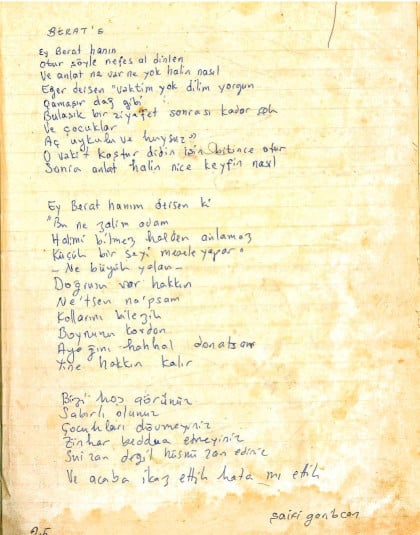 BERAT'E
Ey Berat hanım
Otur şöyle nefes al dinlen
Ve anlat ne var ne yok halin nasıl
Eğer dersen "vaktim yok dilim yorgun
Çamaşır dağ gibi
Bulaşık bir ziyafet sonrası kadar çok
Ve çocuklar
Aç uykulu ve huysuz"
O vakit koştur didin işin bitince otur
Sonra anlat halin nice keyfin nasıl
Ey Berat hanım dersen ki
"Bu ne zalim adam
Halimi bilmez halden anlamaz
Küçük bir şeyi mesele yapar"
- Ne büyük yalan -
Doğrusu var hakkın
Ne'tsen na'psam
Kollarını bilezik
Boynunu kordon
Ayağını halhal donatsam
Yine hakkın kalır
Bizi hoş görünüz
Sabırlı olunuz
Çocukları dövmeyiniz
Zinhar beddua etmeyiniz
Sui zan değil hüsnü zan ediniz
Ve acaba ikaz ettik hata mı ettik